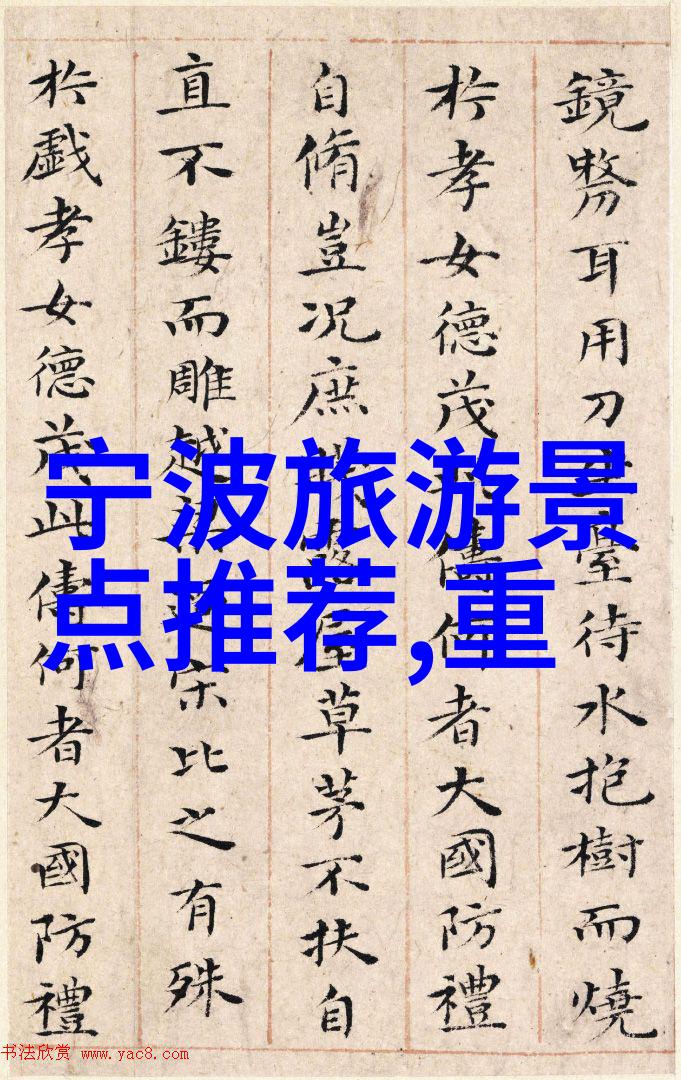 鏡剺耳用刀臺待水抱樹而燒
扵孝女德茂儔何者大國防禮
自脩豈况庶露屋草茅不扶自
直不鏤而雕越宋比之有殊
扵戲孝女德茂此儔何者大國防禮
宁波旅游景
点推荐,重
书法欣赏 www.yac8.com